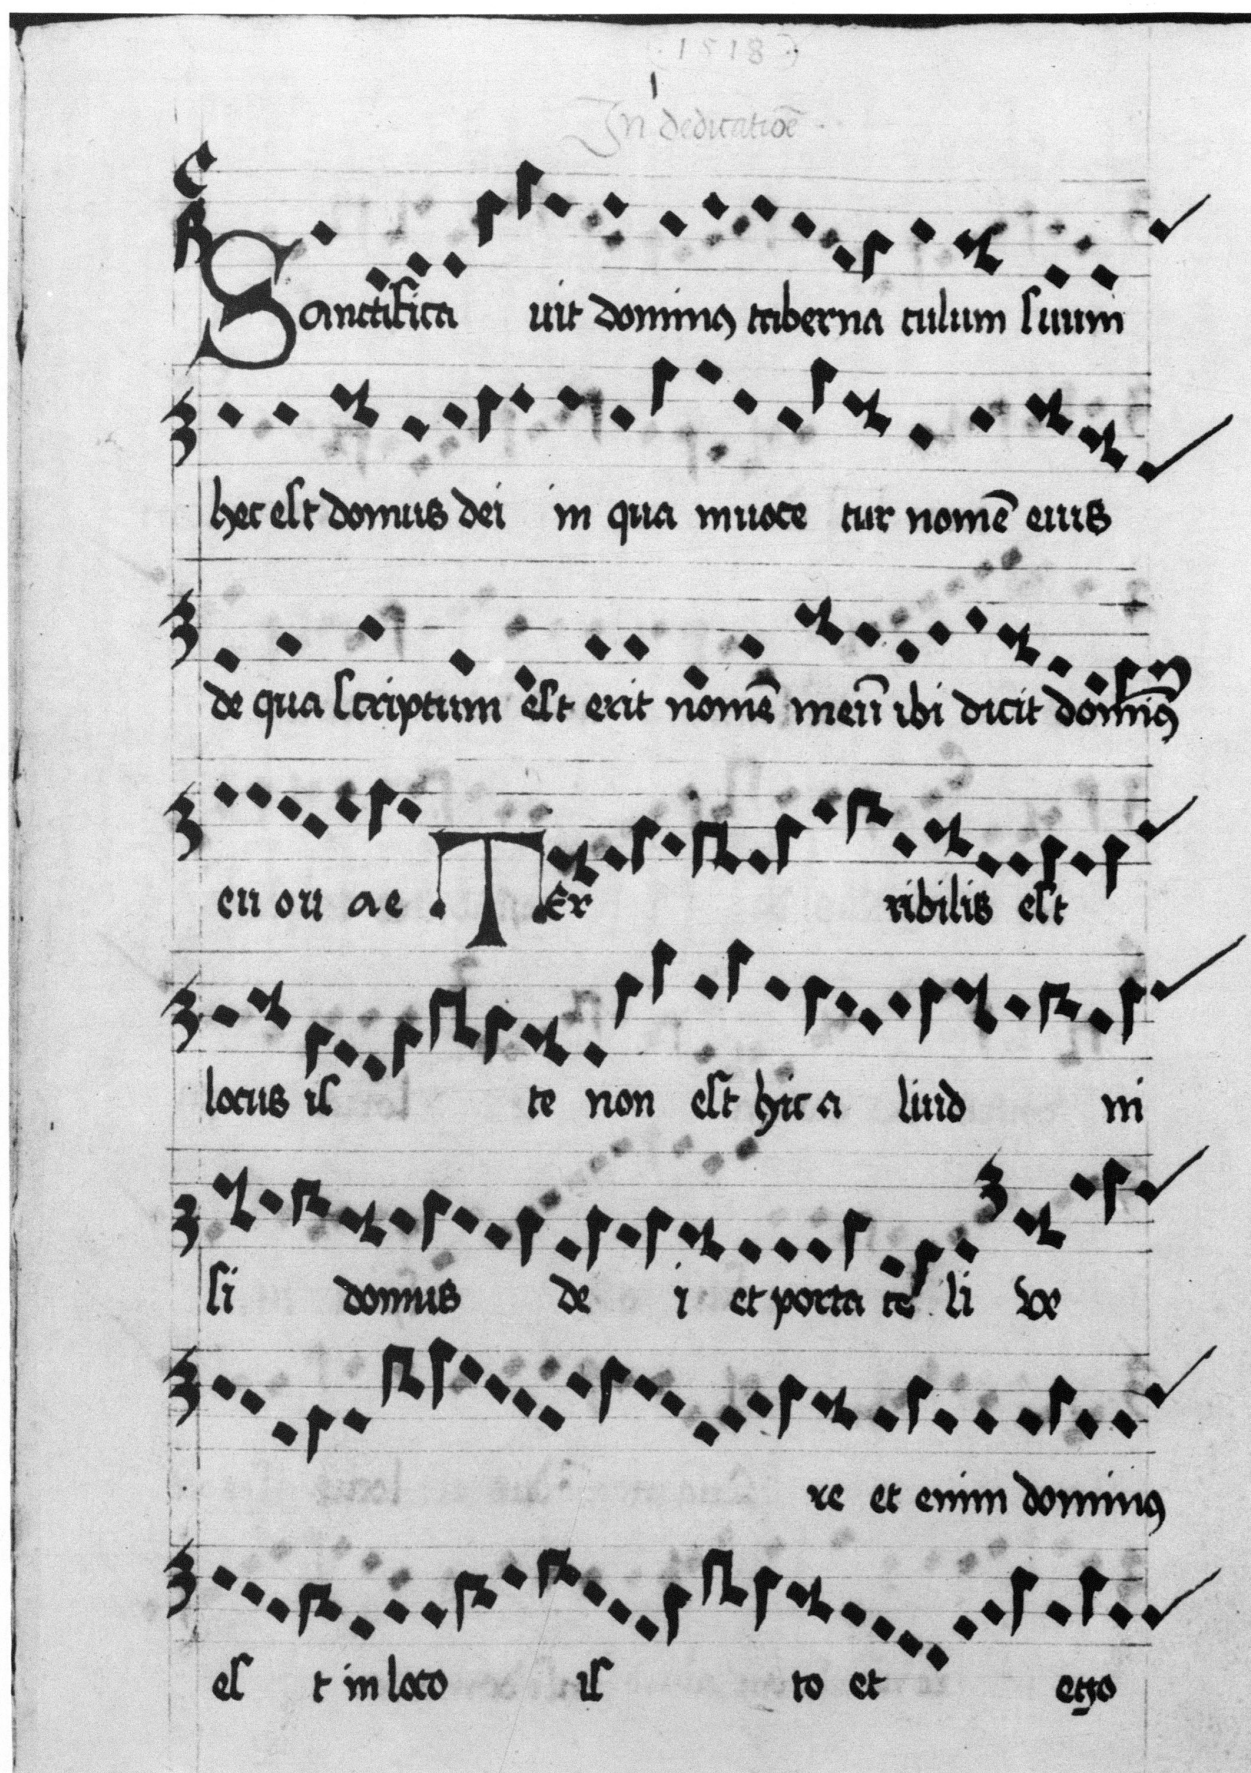 (1518)
1
In dedicatiōe
Sanctifica vit dominꝰ taberna culum suum
hec est domus dei in qua inuoce tur nomē eius
de qua scriptum est erit nomē meū ibi dicit dominꝰ
eu ou ae TEr ribilis est
locus is te non est hic a liud ni
si domus de i et porta ce li Ve
re et enim dominꝰ
es t in loco is to et ego